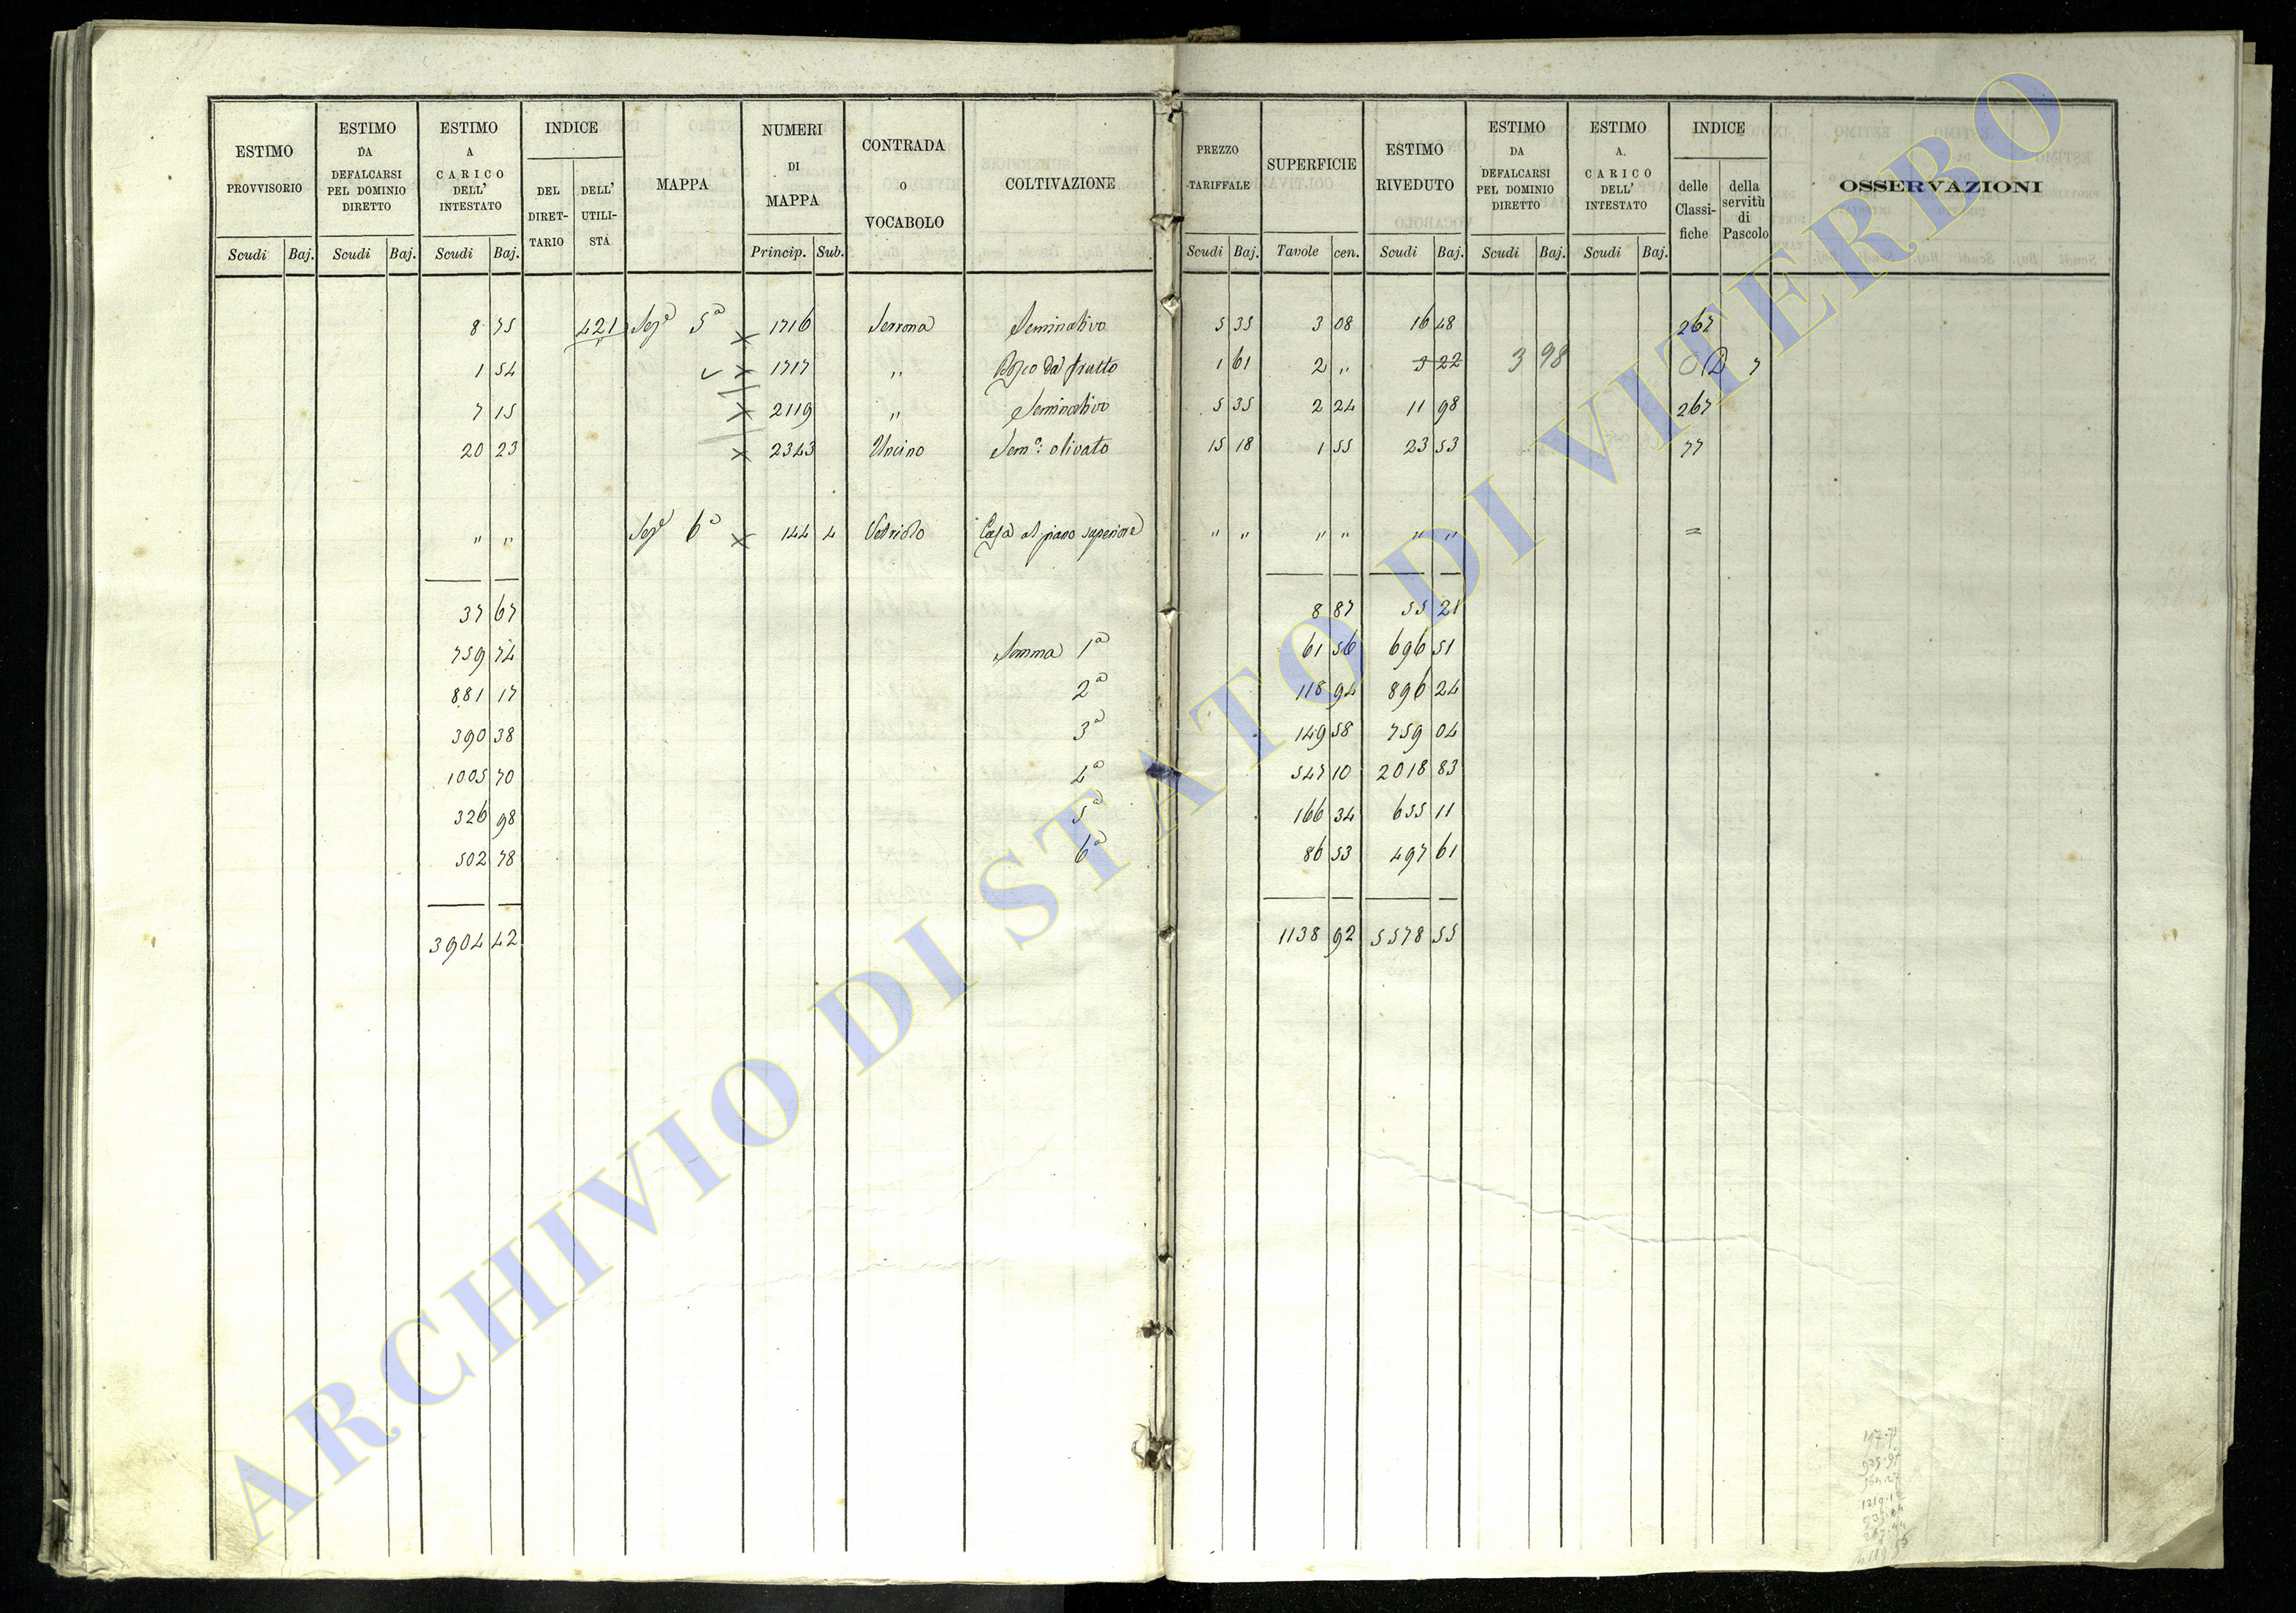 ESTIMO PROVVISORIO | ESTIMO DA DEFALCARSI PEL DOMINIO DIRETTO | ESTIMO A CARICO DELL' INTESTATO | INDICE | MAPPA | NUMERI DI MAPPA | CONTRADA O VOCABOLO | COLTIVAZIONE | PREZZO TARIFFALE | SUPERFICIE | ESTIMO RIVEDUTO | ESTIMO DA DEFALCARSI PEL DOMINIO DIRETTO | ESTIMO A. CARICO DELL' INTESTATO | INDICE | OSSERVAZIONI
DEL DIRET-TARIO | DELL' UTILI-STA | delle Classi-fiche | della servitù di Pascolo
Scudi | Baj. | Scudi | Baj. | Scudi | Baj. | Princip. | Sub. | Scudi | Baj. | Tavole | cen. | Scudi | Baj. | Scudi | Baj. | Scudi | Baj.
8 75 | 421 | Sez.e 5a | 1716 | Serrona | Seminativo | 5 35 | 3 08 | 16 48 | 267
1 54 | 1717 | " | Bosco da frutto | 1 61 | 2 " | 3 22 | 3 98
7 15 | 2119 | " | Seminativo | 5 35 | 2 24 | 11 98 | 267
20 23 | 2343 | Uncino | Sem.o: olivato | 15 18 | 1 55 | 23 53 | 77
" " | Sez.e 6a | 144 4 | Vetriolo | Casa al piano superiore | " " | " " | " " | =
37 67 | 8 87 | 55 21
759 74 | Somma 1a | 61 56 | 696 51
881 17 | 2a | 118 94 | 896 24
390 38 | 3a | 149 58 | 759 04
1005 70 | 4a | 547 10 | 2018 83
326 98 | 5a | 166 34 | 655 11
502 78 | 6a | 86 53 | 497 61
3904 42 | 1138 92 | 5578 55
ARCHIVIO DI STATO DI VITERBO